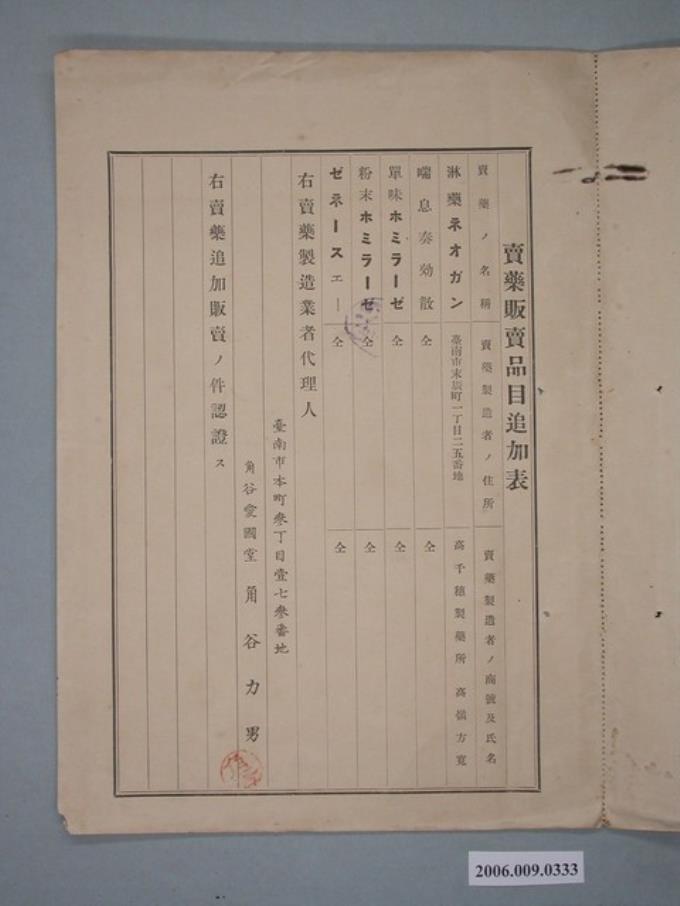 賣藥販賣品目追加表
賣藥ノ名稱 賣藥製造者ノ住所 賣藥製造者ノ商號及氏名
淋藥ネオガン 臺南市末廣町一丁目二五番地 高千穗製藥所 高橋方寬
喘息奏効散 仝 仝
單味ホミラーゼ 仝 仝
粉末ホミラーゼ 仝 仝
ゼネースエー 仝 仝
右賣藥製造業者代理人
臺南市本町叁丁目壹七叁番地
角谷愛國堂 角谷力男
右賣藥追加販賣ノ件認證ス
2006.009.0333